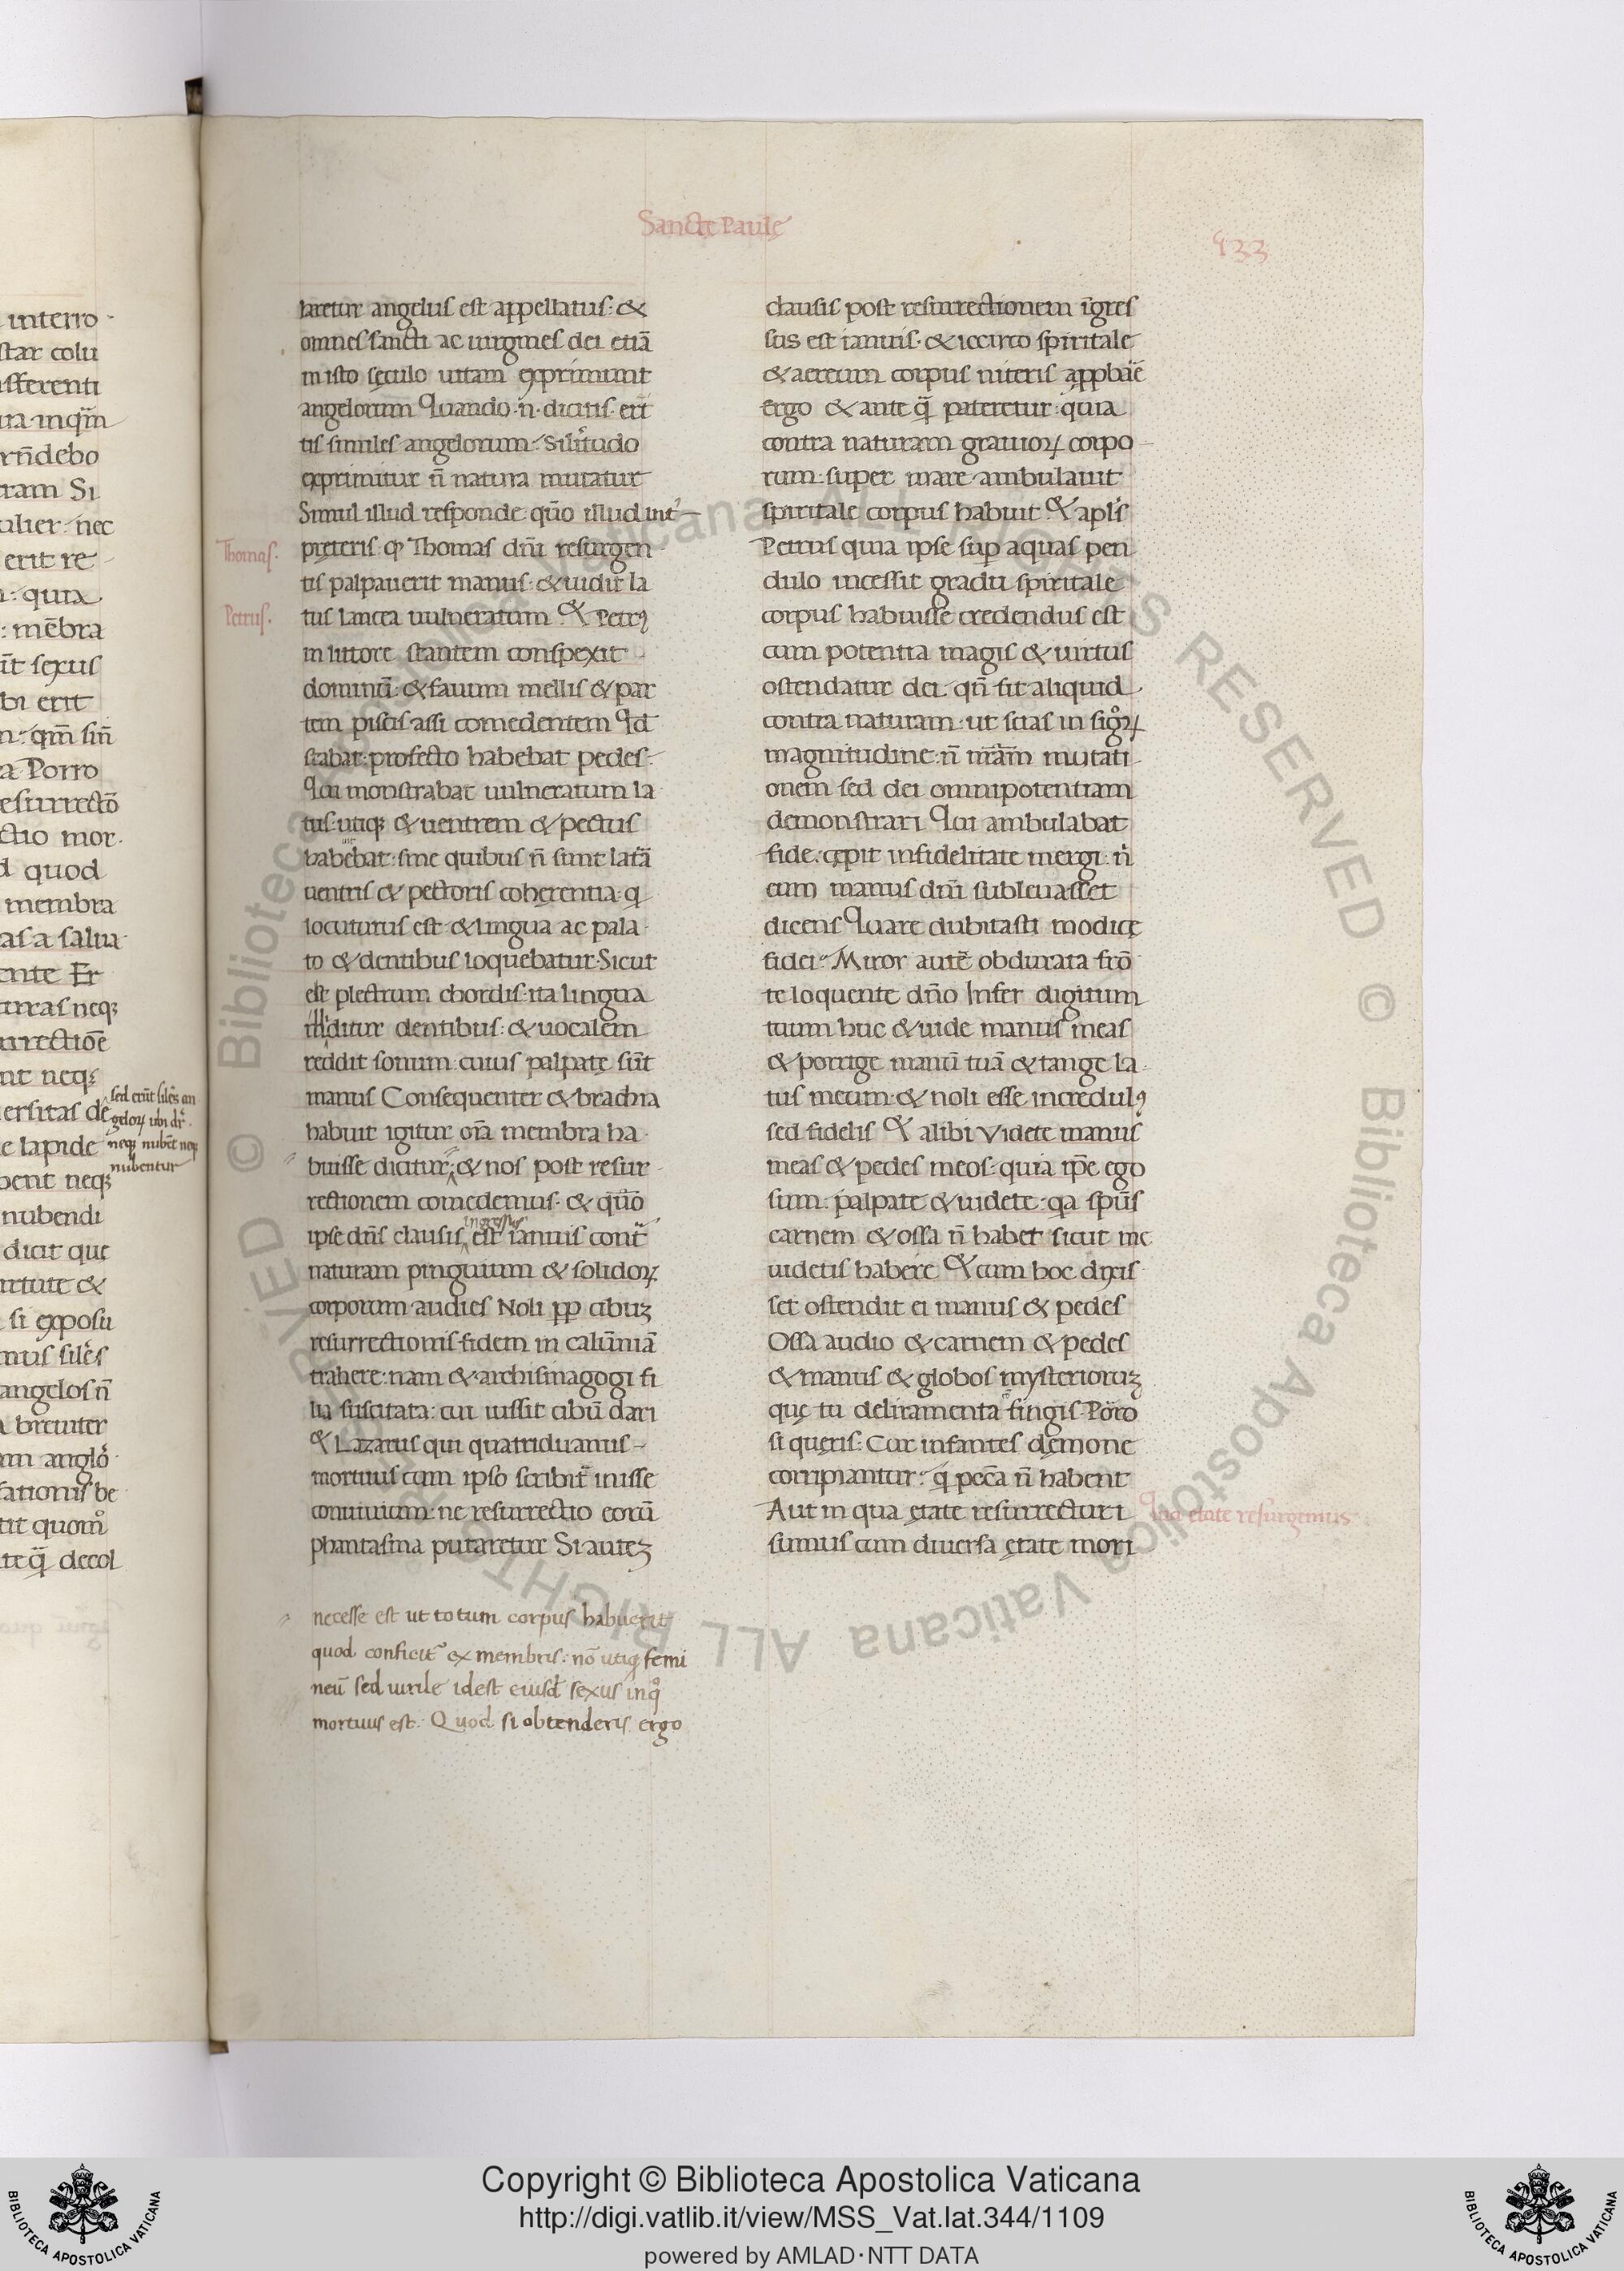 Sancte Paule
433
interro
star colu
ifferenti
ura·inqm̄
rn̄debo
tram Si
ulier: nec
erit re
quia
: mēbra
īt sexus
bi erit
n: qm̄ sin̄
a Porro
esurrectō
ctio mor·
d quod
membra
as a salua
ente Er
turas neqꝫ
urrectiōe
nt neqꝫ
ersitas de
e lapide
bent neqꝫ
nubendi
dicit que
irtute &
si exposu
mus silēs
angelos n̄
a breuiter
am anglo
sationis be
tit quom̊
te q̄ decol
sed erūt silēs an
geloꝝ ubi dr̄
neqꝫ nubēt neqꝫ
nubentur
laretur angelus est appellatus: &
omnes sancti ac uirgines dei etiā
in isto sęculo uitam exprimunt
angelorum Quando·n̄·dicitis·eri
tis similes angelorum: Silitudo
exprimitur n̄ natura mutatur
Simul illud responde: quō illud int̄
Thomas.
pręteris· qꝫ Thomas dn̄i resurgen
tis palpauerit manus· & uidit la
Petrus.
tus lancea uulneratum & Petrꝰ
in littore stantem conspexit
dominū: & fauum mellis & par
tem piscis assi comedentem Id
stabat: profecto habebat pedes:
Qui monstrabat uulneratum la
tus: utiqꝫ & uentrem & pectus
habebat: sine quibus n̄ sunt latā
uentris & pectoris coherentia: q
locuturus est· & lingua ac pala
to & dentibus loquebatur· Sicut
est plectrum chordis: ita lingua
illiditur dentibus: & uocalem
reddit sonum: cuius palpatę sūt
manus Consequenter & brachia
habuit igitur oīa membra ha
buisse dicitur; & nos post resur
rectionem comedemus· & quō
ingressus
ipse dn̄s clausis est ianuis cont̄
naturam pinguium & solidoꝝ
corporum· audies Noli ꝓp cibuꝫ
resurrectionis fidem in calūniā
trahere: nam & archisinagogi fi
lia suscitata: cui iussit cibū dari
& Lazarus qui quatriduanus
mortuus cum ipso scribit̄ inisse
conuiuium: ne resurrectio eorū
phantasma putaretur Si auteꝫ
necesse est ut totum corpus habuerit
quod conficit̄ ex membris: nō utiqꝫ femi
neū sed uirile idest eiusd̄ sexus in q̊
mortuus est: Quod si obtenderis ergo
clausis post resurrectionem īgres
sus est ianuis· & iccirco spiritale
& aereum corpus niteris approbare
ergo & ante q̄ pateretur: quia
contra naturam grauioꝝ corpo
rum: super mare ambulauit
spiritale corpus habuit & apl̄s
Petrus quia ipse sup aquas pen
dulo incessit gradu spiritale
corpus habuisse credendus est
cum potentia magis & uirtus
ostendatur dei· qn̄ fit aliquid
contra naturam· ut scias in sig̊ꝝ
magnitudine: n̄ nr̄am mutati
onem sed dei omnipotentiam
demonstrari Qui ambulabat
fide: cępit infidelitate mergi: ni
eum manus dn̄i subleuasset
dicens Quare dubitasti modicę
fidei: Miror autē obdurata frō
te loquente dn̄o Infer digitum
tuum huc & uide manus meas
& porrige manū tuā & tange la
tus meum· & noli esse incredulꝰ
sed fidelis & alibi Videte manus
meas & pedes meos: quia ip̄e ego
sum: palpate & uidete· qa sp̄us
carnem & ossa n̄ habet sicut me
uidetis habere & cum hoc dixis
set ostendit ei manus & pedes
Ossa audio & carnem & pedes
& manus & globos mysterioruꝫ
quę tu deliramenta fingis· Porro
si quęris: Cur infantes dęmone
corripiantur: q̄ pecc̄a n̄ habent
Aut in qua ętate resurrecturi
Qua etate resurgemus
sumus cum diuersa ętate mori
© Biblioteca Apostolica Vaticana ALL RIGHTS RESERVED © Biblioteca Apostolica Vaticana ALL RIGHTS RESERVED
Copyright © Biblioteca Apostolica Vaticana
http://digi.vatlib.it/view/MSS_Vat.lat.344/1109
powered by AMLAD·NTT DATA
BIBLIOTECA APOSTOLICA VATICANA
BIBLIOTECA APOSTOLICA VATICANA